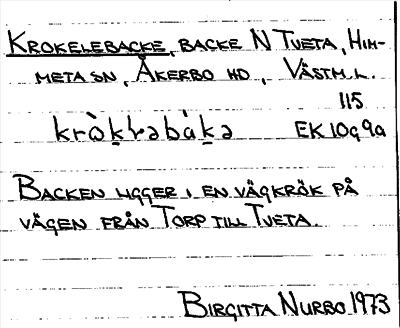 KROKELEBACKE, BACKE N TUETA, HIM-
META SN, ÅKERBO HD, VÄSTM. L.
115
kròk̠ləbàk̠ə EK 10g9a
BACKEN LIGGER I EN VÄGKRÖK PÅ
VÄGEN FRÅN TORP TILL TUETA.
BIRGITTA NURBO 1973